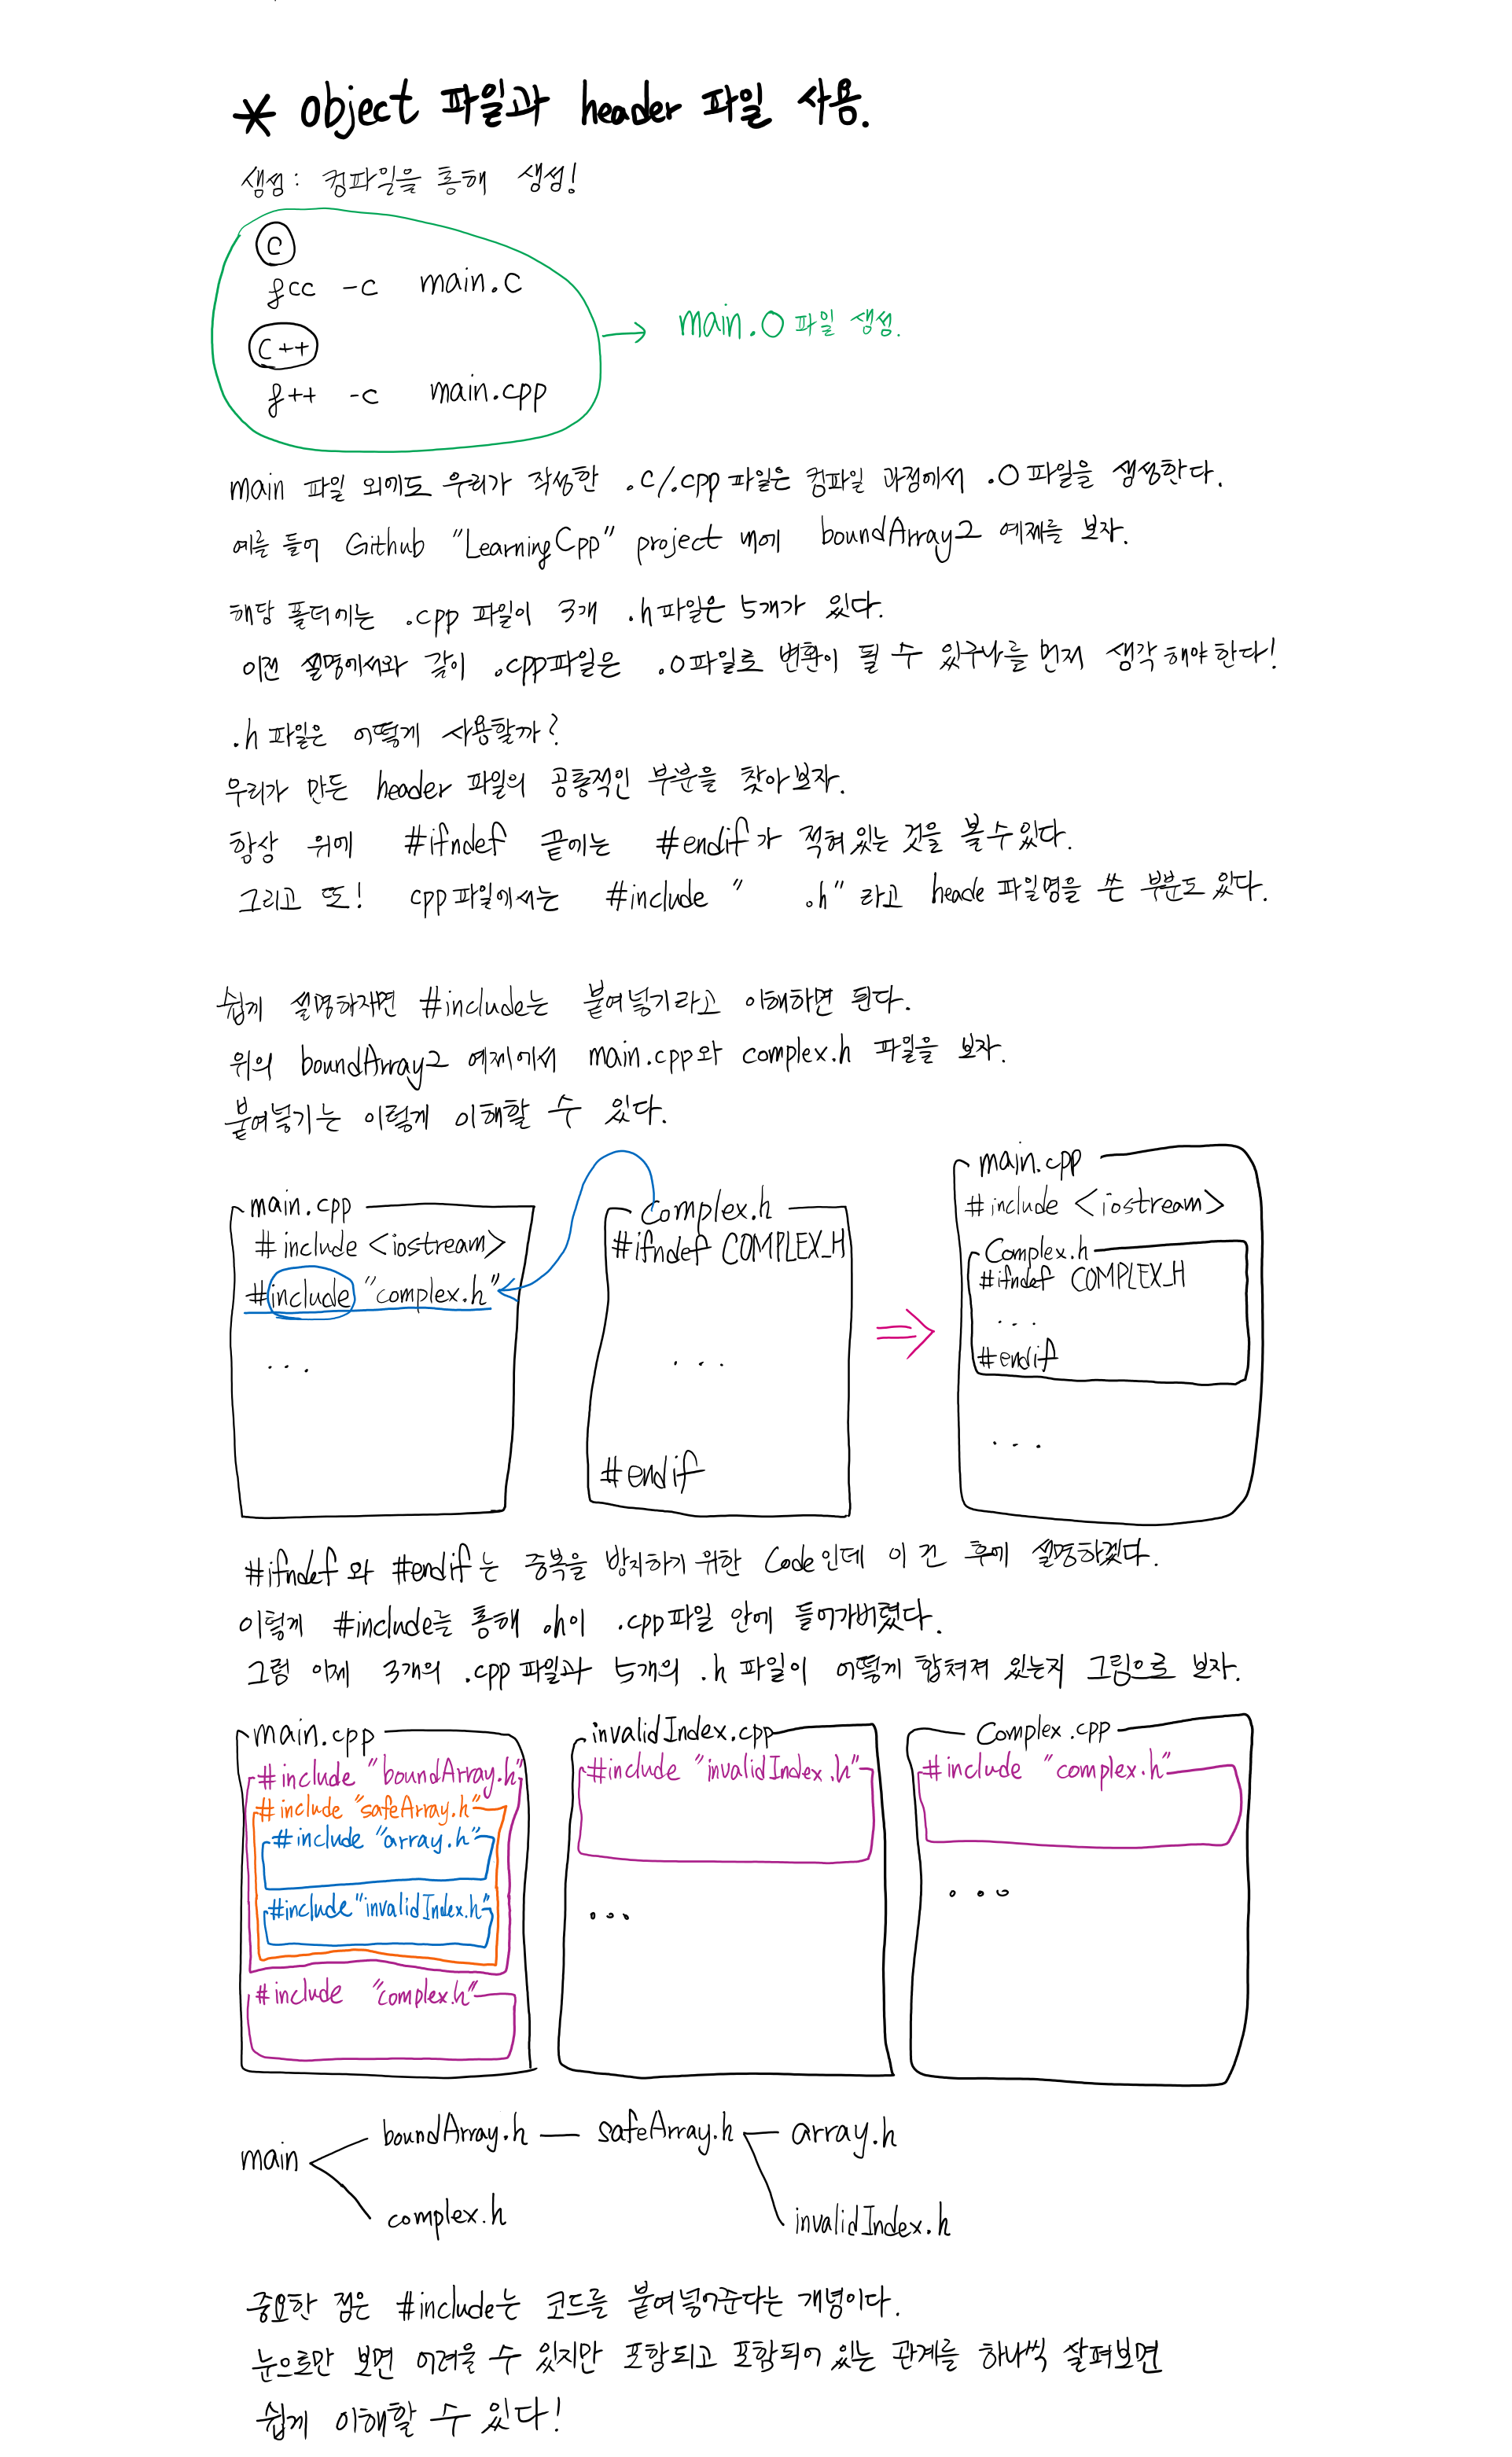 * object 파일과 header 파일 사용.
생성: 컴파일을 통해 생성!
C
gcc -c main.c
C++
g++ -c main.cpp
→ main.o 파일 생성.
main 파일 외에도 우리가 작성한 .c/.cpp 파일은 컴파일 과정에서 .o 파일을 생성한다.
예를 들어 Github "LearningCpp" project 내에 boundArray2 예제를 보자.
해당 폴더에는 .cpp 파일이 3개 .h 파일은 5개가 있다.
이전 설명에서와 같이 .cpp파일은 .o파일로 변환이 될 수 있구나를 먼저 생각해야한다!
.h 파일은 어떻게 사용할까?
우리가 만든 header 파일의 공통적인 부분을 찾아보자.
항상 위에 #ifndef 끝에는 #endif가 적혀있는 것을 볼수있다.
그리고 또! cpp 파일에서는 #include " .h" 라고 heade 파일명을 쓴 부분도 있다.
쉽게 설명하자면 #include는 붙여넣기라고 이해하면 된다.
위의 boundArray2 예제에서 main.cpp와 complex.h 파일을 보자.
붙여넣기는 이렇게 이해할 수 있다.
main.cpp
#include <iostream>
#include "complex.h"
...
complex.h
#ifndef COMPLEX_H
...
#endif
⇒
main.cpp
#include <iostream>
Complex.h
#ifndef COMPLEX_H
...
#endif
...
#ifndef와 #endif는 중복을 방지하기 위한 Code인데 이 건 후에 설명하겠다.
이렇게 #include는 통해 .h이 .cpp파일 안에 들어가버렸다.
그럼 이제 3개의 .cpp 파일과 5개의 .h 파일이 어떻게 합쳐져 있는지 그림으로 보자.
main.cpp
#include "boundArray.h"
#include "safeArray.h"
#include "array.h"
#include "invalidIndex.h"
#include "complex.h"
invalidIndex.cpp
#include "invalidIndex.h"
...
Complex.cpp
#include "complex.h"
...
main
boundArray.h — safeArray.h — array.h
complex.h
invalidIndex.h
중요한 점은 #include는 코드를 붙여넣어준다는 개념이다.
눈으로만 보면 어려울 수 있지만 포함되고 포함되어 있는 관계를 하나씩 살펴보면
쉽게 이해할 수 있다!